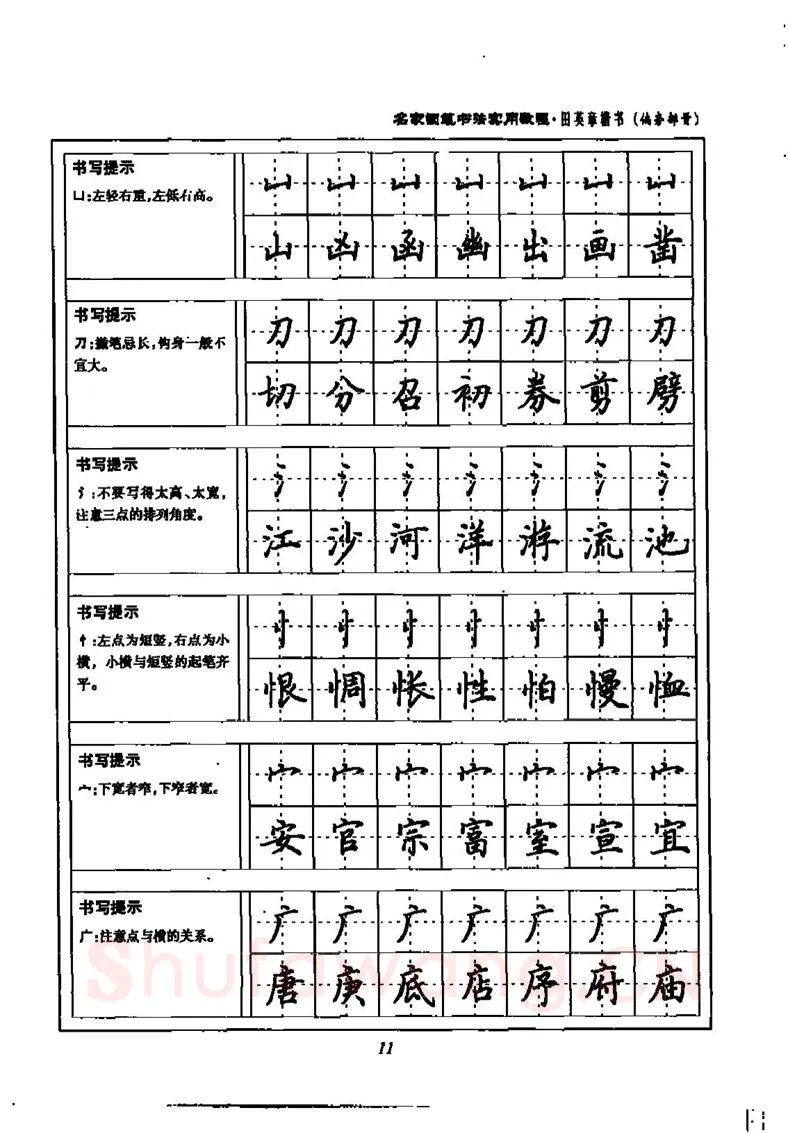 名家钢笔书法实用教程·田英章楷书(偏旁部首)
书写提示
凵:左轻右重,左低右高。
凵 凵 凵 凵 凵 凵 凵
山 凶 函 幽 出 画 凿
书写提示
刀:撇笔忌长,钩身一般不
宜大。
刀 刀 刀 刀 刀 刀 刀
切 分 召 初 券 剪 劈
书写提示
氵:不要写得太高、太宽,
注意三点的排列角度。
氵 氵 氵 氵 氵 氵 氵
江 沙 河 洋 游 流 池
书写提示
忄:左点为短竖,右点为小
横,小横与短竖的起笔齐
平。
忄 忄 忄 忄 忄 忄 忄
恨 惆 怅 性 怕 慢 恤
书写提示
宀:下宽者窄,下窄者宽。
宀 宀 宀 宀 宀 宀 宀
安 官 宗 富 室 宣 宜
书写提示
广:注意点与横的关系。
广 广 广 广 广 广 广
唐 庚 底 店 序 府 庙
Shufawang.CN
11